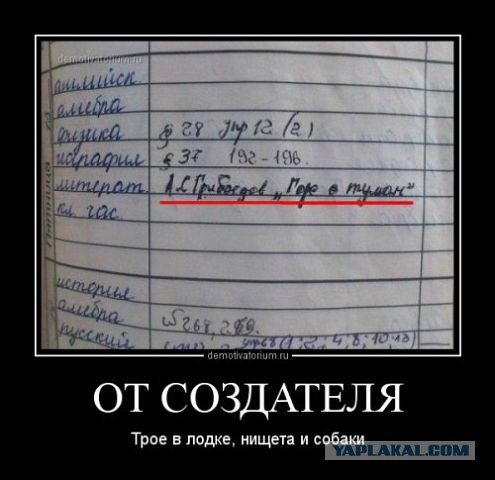 demotivatorium.ru
Пятница 13
английск.
алгебра
физика § 28 упр 12 (2)
география § 37 192-196.
литерат. А.С Грибоедов „Горе о туман"
кл. час.
история
алгебра № 268, 269.
русский
demotivatorium.ru
ОТ СОЗДАТЕЛЯ
Трое в лодке, нищета и собаки
YAPLAKAL.COM